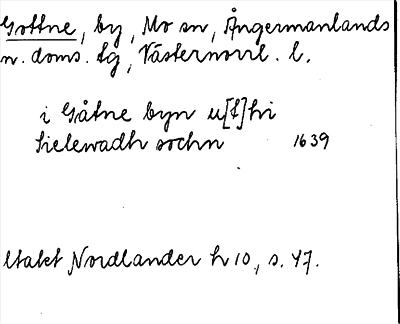 Gottne, by, Mo sn, Ångermanlands
n. doms. tg, Västernorrl. l.
i Gåtne byn u[t]hi
Sielewadh sochn 1639
Utakt Nordlander h 10, s. 47.